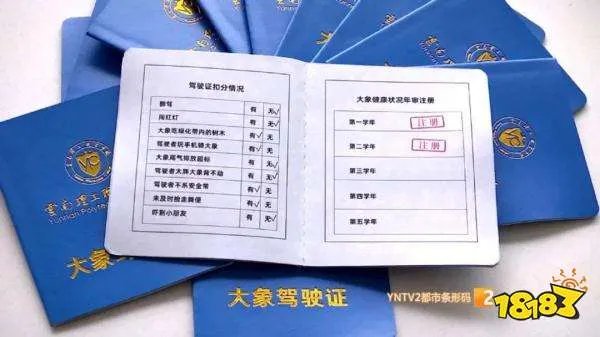 驾驶证扣分情况
醉驾 有 无√
闯红灯 有 无√
大象吃绿化带内的树木 有√ 无
驾驶者玩手机骑大象 有√ 无
大象尾气排放超标 有 无√
驾驶者太胖大象背不动 有 无√
驾驶者不系安全带 有√ 无
未及时捡走粪便 有√ 无
吓到小朋友 有 无√
大象健康状况年审注册
第一学年 注册
第二学年 注册
第三学年
第四学年
第五学年
云南理工
Yunnan Polyte
大象
大象驾驶证
YNTV2都市条形码 2
18183